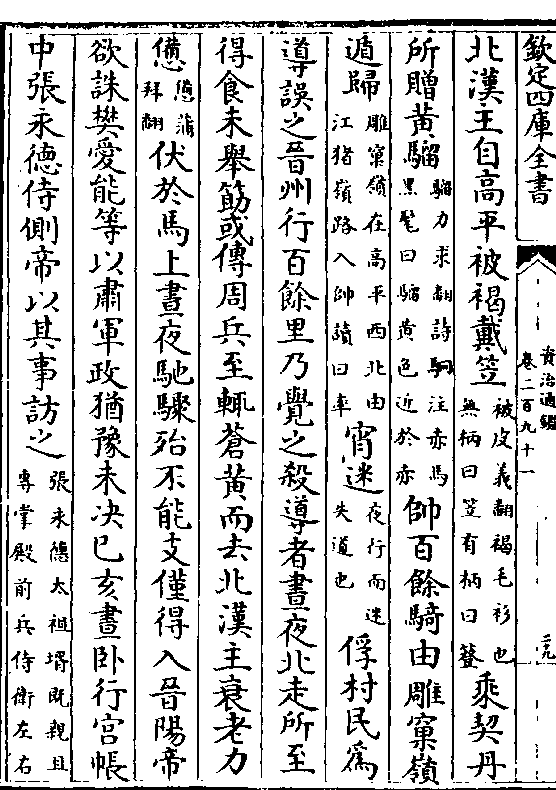 欽定四庫全書
資治通鑑
卷二百九十一
北漢王自高平被褐戴笠被皮義翻褐毛衫也無柄曰笠有柄曰簦乘契丹
所贈黄騮騮力求翻詩駉注赤馬黑髦曰騮黄色近於赤帥百餘騎由雕窠嶺
遁歸雕窠嶺在高平西北由江猪嶺路入帥讀曰率宵迷夜行而迷失道也俘村民為
導誤之晉州行百餘里乃覺之殺導者晝夜北走所至
得食未舉筯或傳周兵至輒蒼黄而去北漢主衰老力
憊憊蒲拜翻伏於馬上晝夜馳驟殆不能支僅得入晉陽帝
欲誅樊愛能等以肅軍政猶豫未決已亥晝卧行宫帳
中張永德侍側帝以其事訪之張永德太祖壻既親且專掌殿前兵侍衛左右